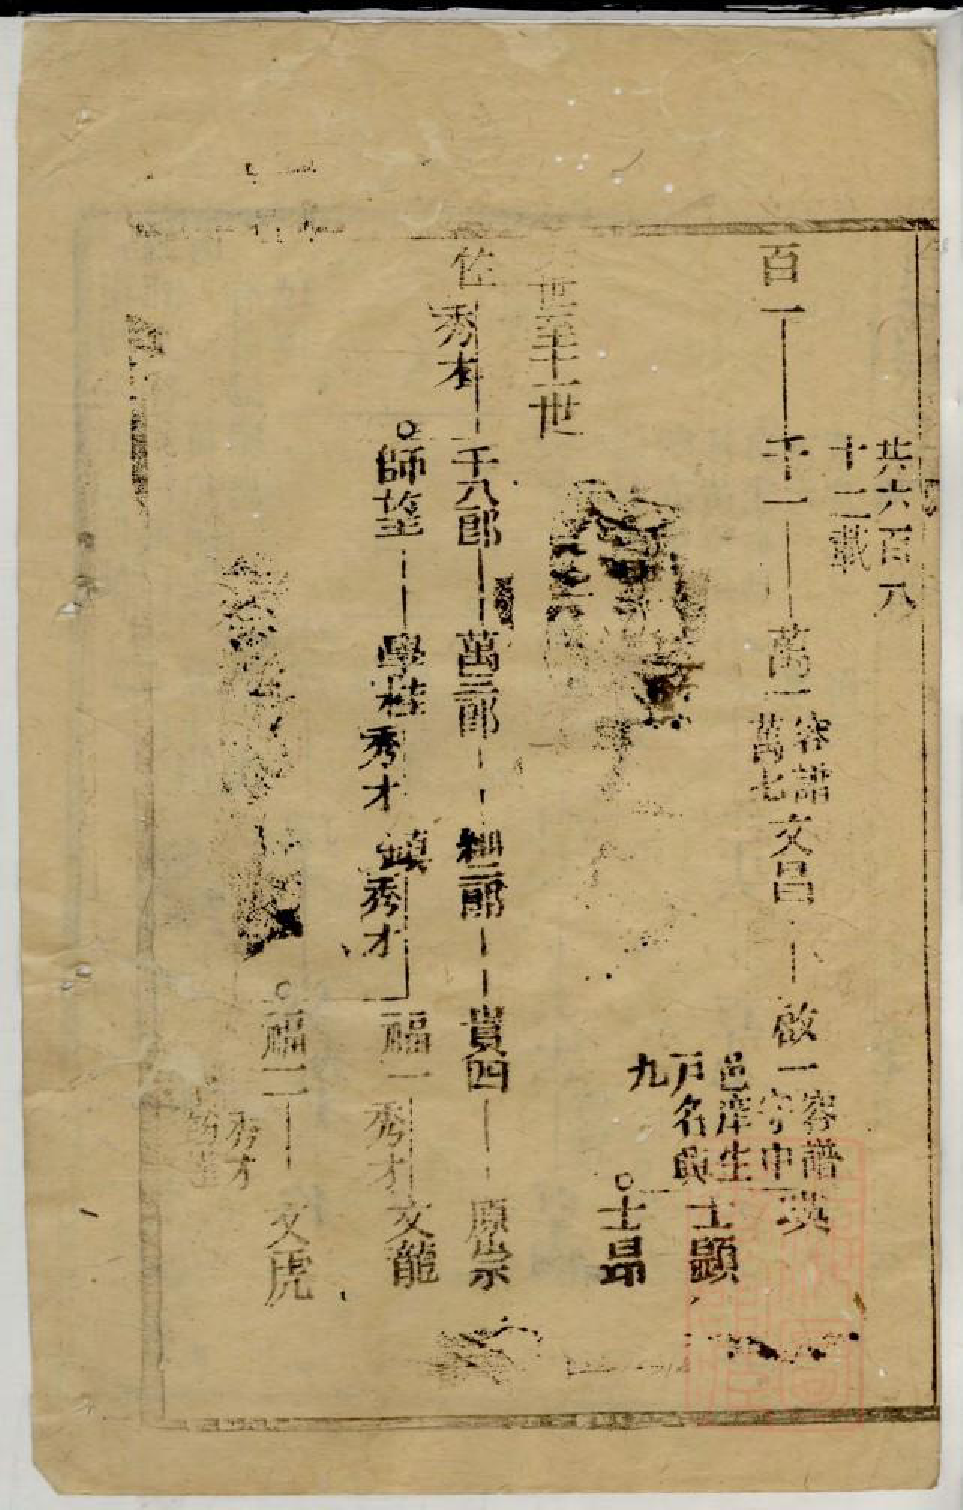 共六百八
十二載
百一 千一 萬一 容譜萬七 文昌 啟一 容譜守中 瑛
邑庠生
戶名與
九
士顯
士昂
世至十一世
佐秀才 千八郎 萬三郎 細三郎 貴四 原崇
師望 學桂秀才 鎮秀才 福一秀才 文龍
福二 文虎
秀才